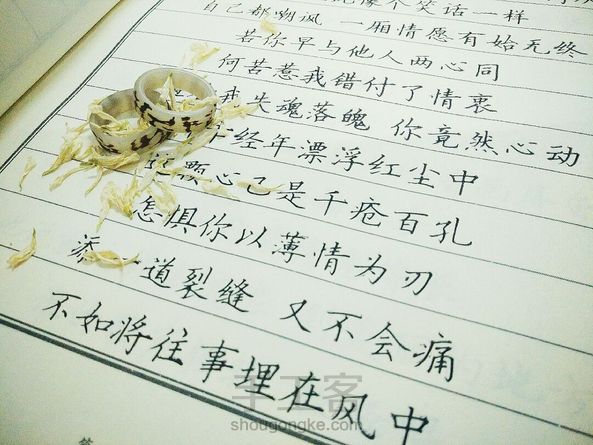 像个笑话一样
自己都嘲讽 一厢情愿有始无终
若你早与他人两心同
何苦惹我错付了情衷
我失魂落魄 你竟然心动
经年漂浮红尘中
这颗心已是千疮百孔
怎惧你以薄情为刃
添一道裂缝 又不会痛
不如将往事埋在风中
手工客
shougongke.com